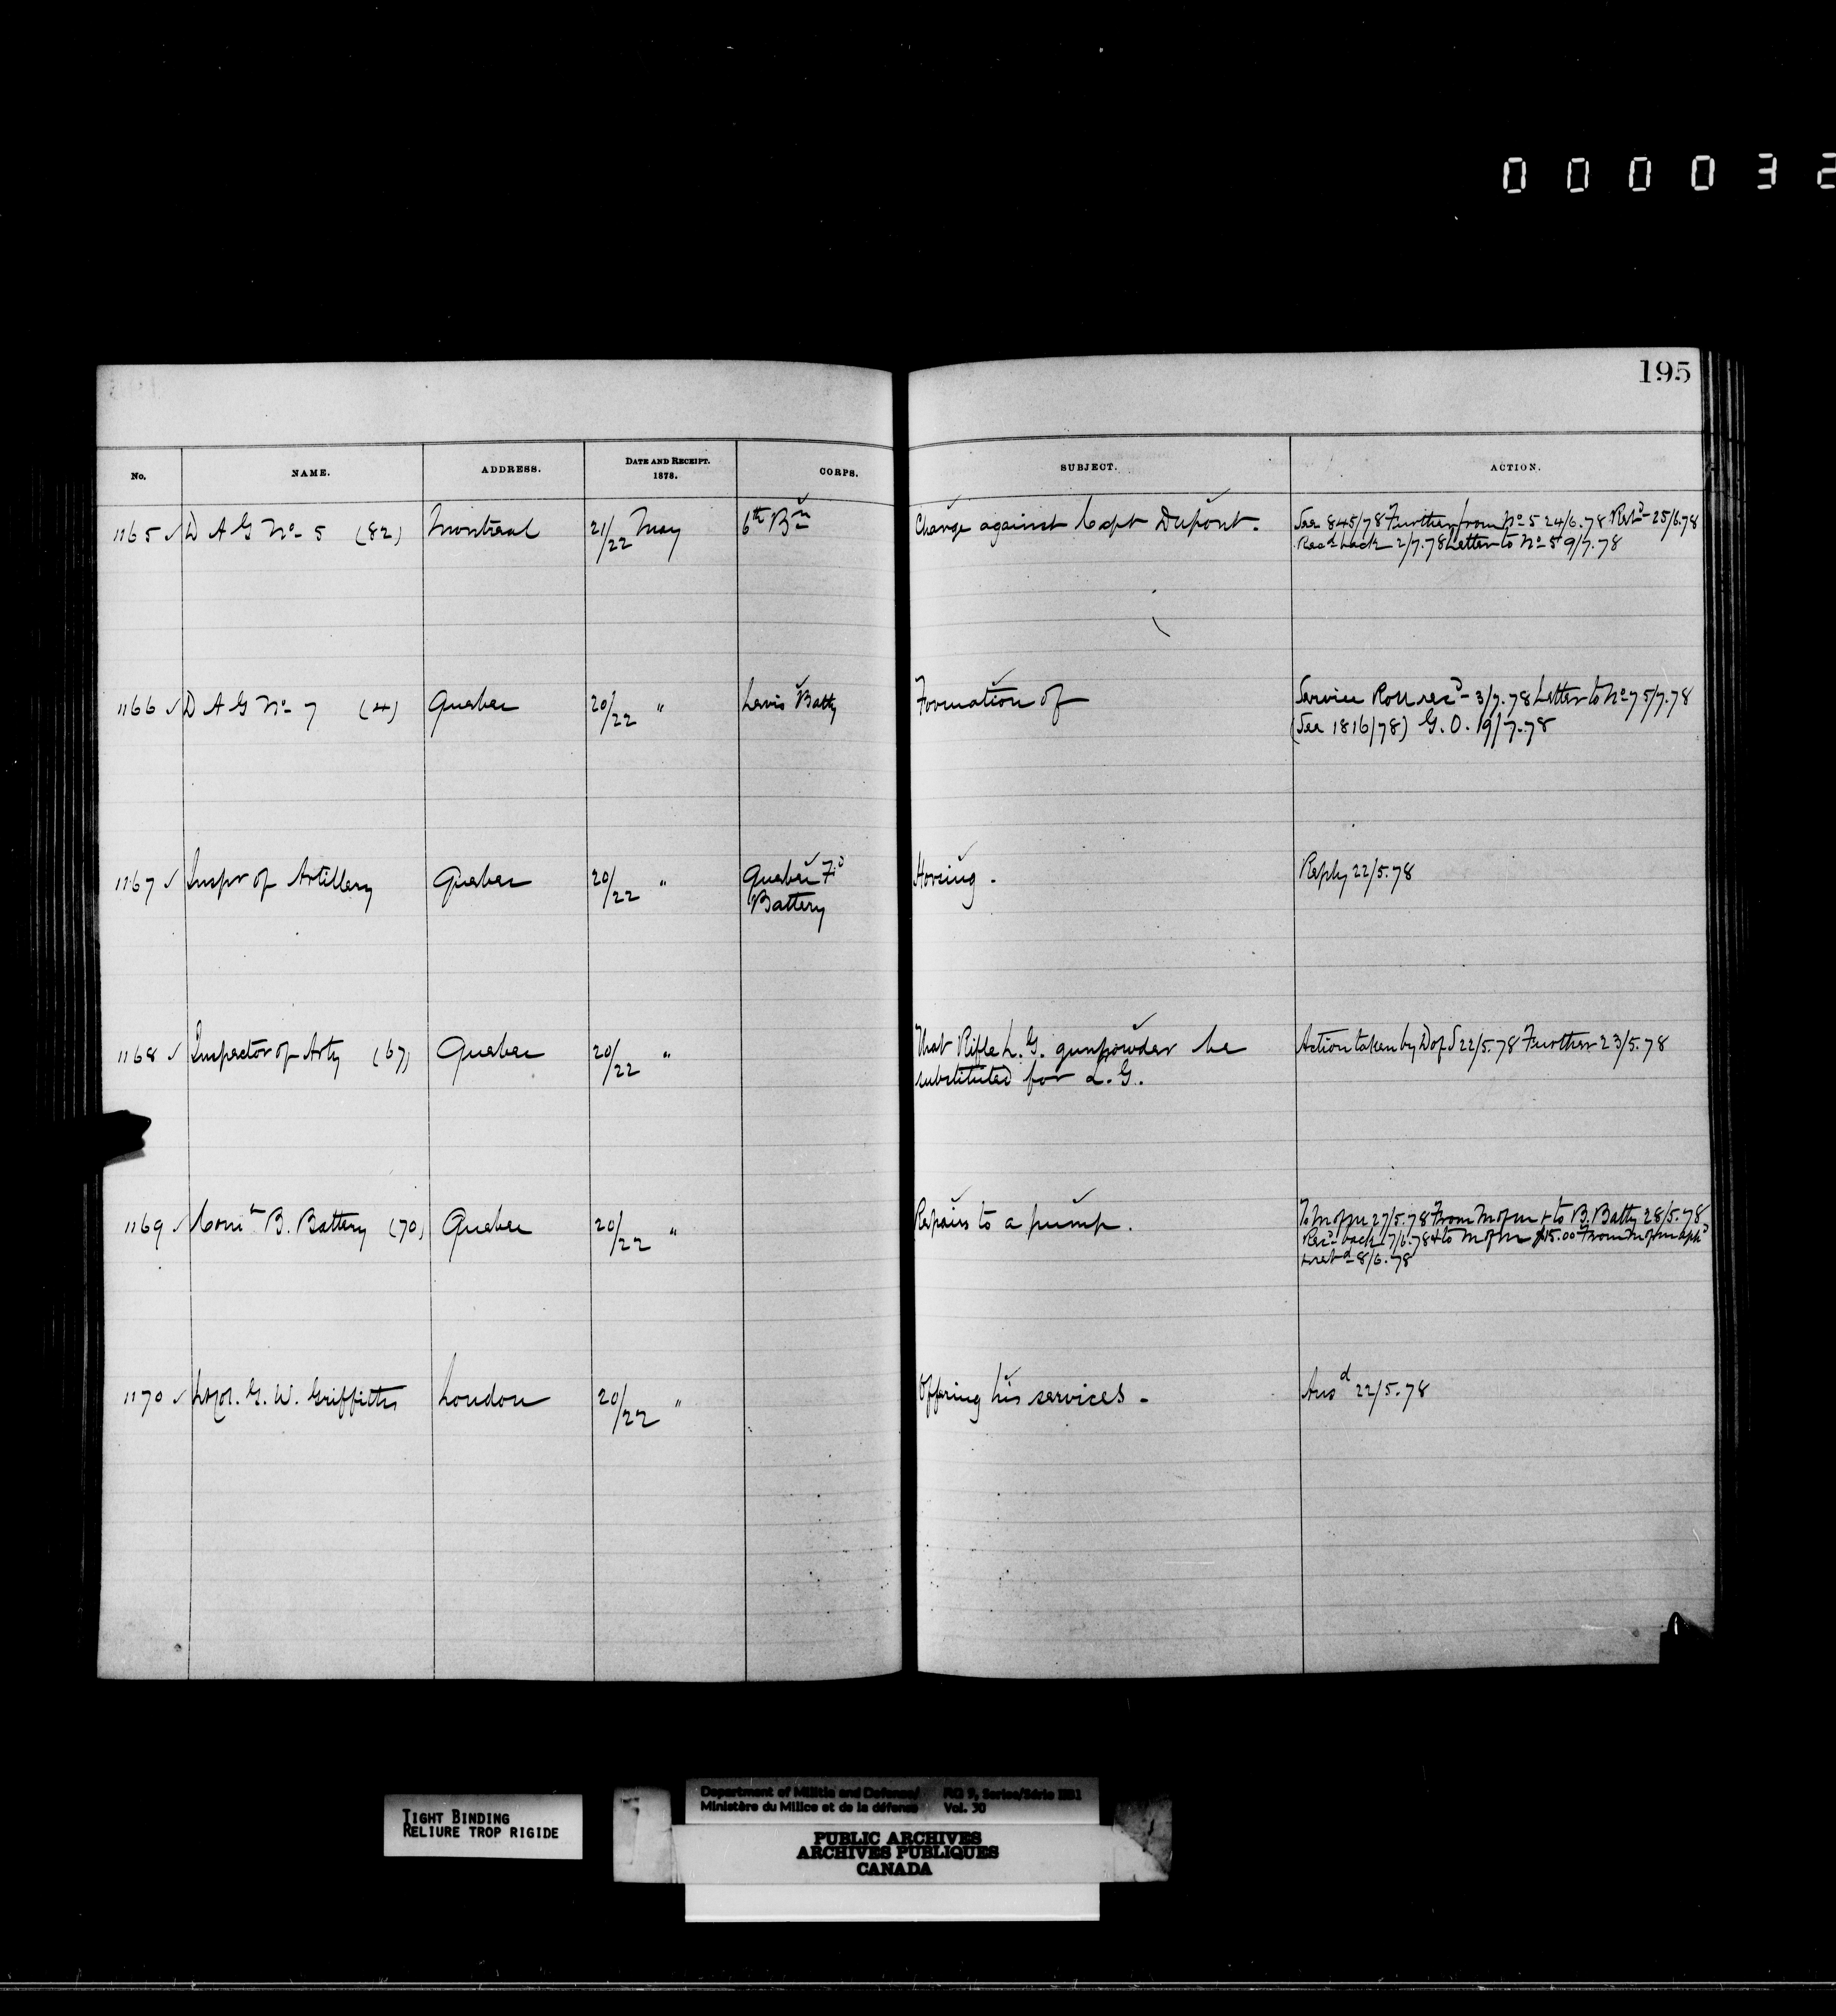 0 0 0 0 3 2
195
No. NAME. ADDRESS. DATE AND RECEIPT. 1878. CORPS. SUBJECT. ACTION.
1165 ✓ D A G No 5 (82) Montreal 21/22 May 6th Bn Charge against Capt Dupont. See 845/78 Further from No 5 24/6.78 Retd 25/6.78
Recd back 2/7.78 Letter to No 5 9/7.78
1166 ✓ D A G No 7 (4) Quebec 20/22 " Levis Batty Formation of Service Roll recd 3/7.78 Letter to No 7 5/7.78
(See 1816/78) G.O. 19/7.78
1167 ✓ Inspr of Artillery Quebec 20/22 " Quebec Fd Horsing. Reply 22/5.78
Battery
1168 ✓ Inspector of Arty (67) Quebec 20/22 " That Rifle L.G. gunpowder be Action taken by D of S 22/5.78 Further 23/5.78
substituted for L.G.
1169 ✓ Comt B. Battery (70) Quebec 20/22 " Repairs to a pump. To M of M 27/5.78 From M of M + to B. Batty 28/5.78
Recd back 7/6.78 + to M of M $15.00 From M of M
+ retd 8/6.78
1170 ✓ Lt Col. G. W. Griffiths London 20/22 " Offering his services - Ansd 22/5.78
TIGHT BINDING
RELIURE TROP RIGIDE
Department of Militia and Defence/ RG 9, Series/Série IIB1
Ministère du Milice et de la défense Vol. 30
PUBLIC ARCHIVES
ARCHIVES PUBLIQUES
CANADA